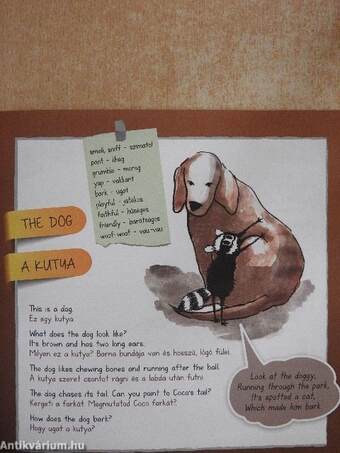 smell, sniff - szimatol
pant - liheg
grumble - morog
yap - vakkant
bark - ugat
playful - játékos
faithful - hűséges
friendly - barátságos
woof-woof - vau-vau
THE DOG
A KUTYA
This is a dog.
Ez egy kutya.
What does the dog look like?
It's brown and has two long ears.
Milyen ez a kutya? Barna bundája van és hosszú, lógó fülei.
The dog likes chewing bones and running after the ball.
A kutya szeret csontot rágni és a labda után futni.
The dog chases its tail. Can you point to Coco's tail?
Kergeti a farkát. Megmutatod Coco farkát?
How does the dog bark?
Hogy ugat a kutya?
Look at the doggy,
Running through the park,
It's spotted a cat,
Which made him bark.
Antikvárium.hu